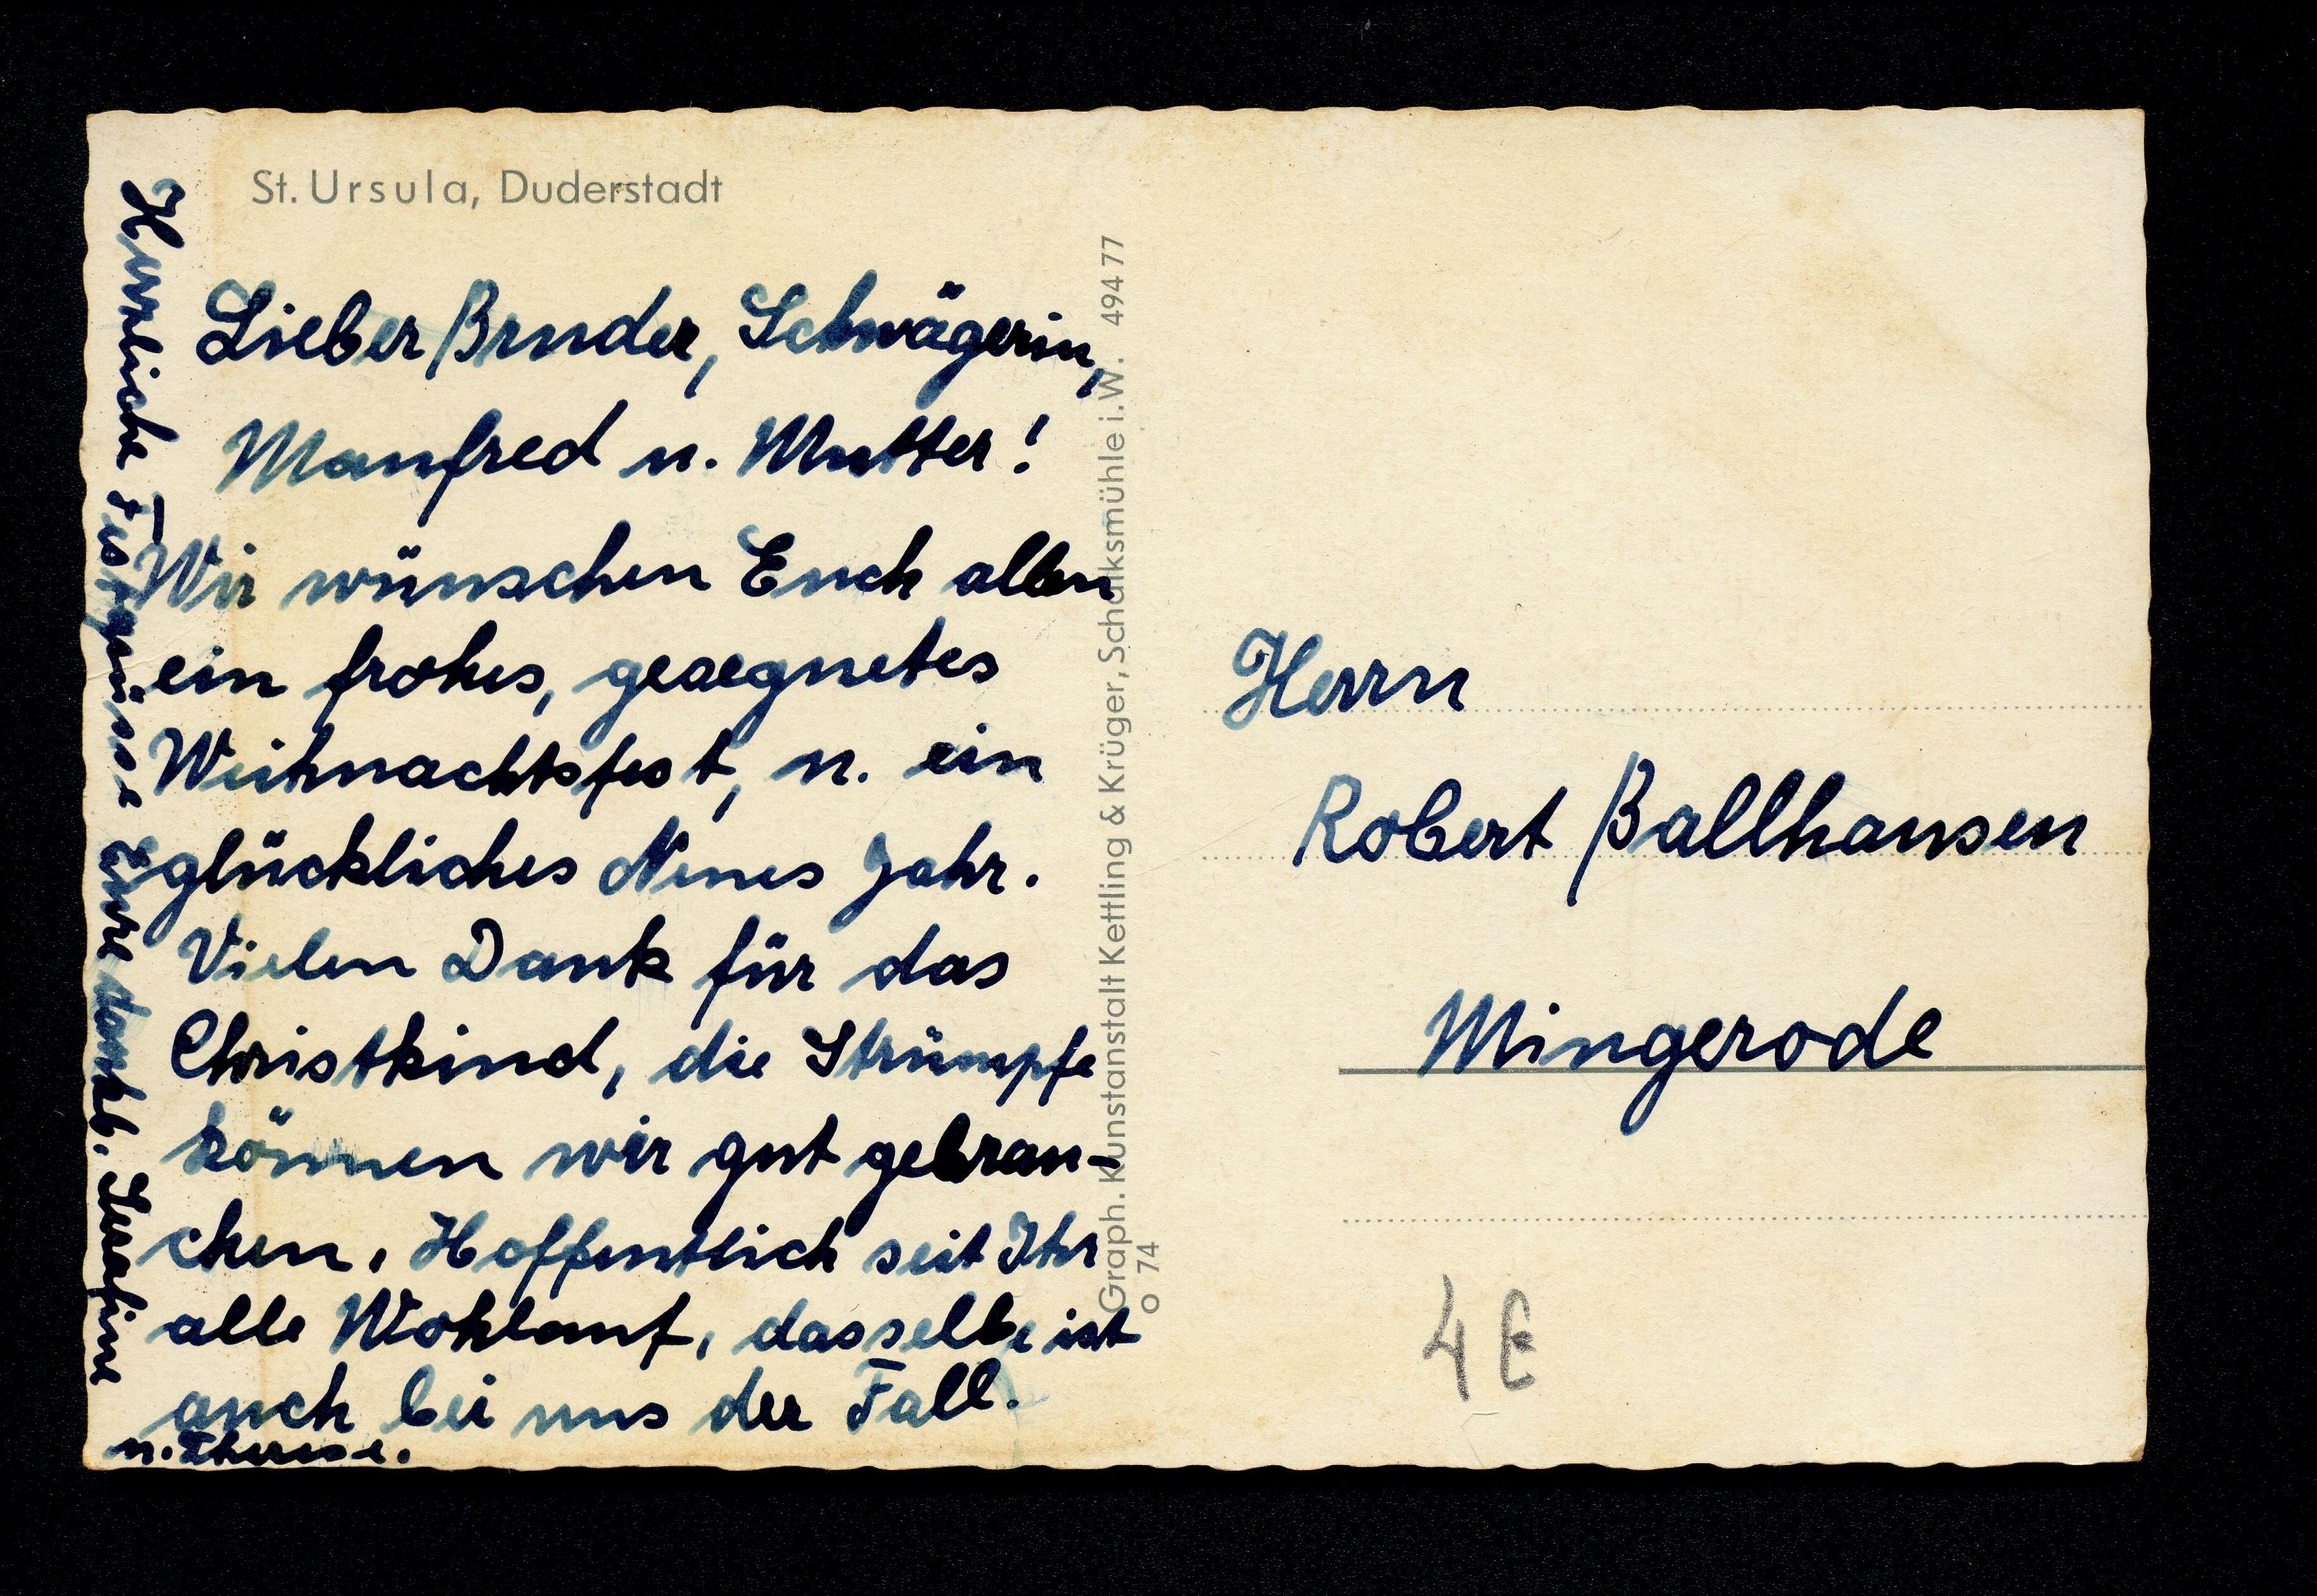 St. Ursula, Duderstadt
Lieber Bruder, Schwägerin,
Manfred u. Mutter!
Wir wünschen Euch allen
ein frohes, geaegnetes
Weihnachtsfest, u. ein
glückliches Neues Jahr.
Vielen Dank für das
Christkind, die Strümpfe
können wir gut gebrau-
chen. Hoffentlich seit Ihr
alle Wohlauf, dasselbe ist
auch bei uns der Fall.
Herzliche Festgrüsse Eure dankb. Serafine
u. Therese.
Graph. Kunstanstalt Kettling & Krüger, Schalksmühle i. W. 494 77
O 74
Herrn
Robert Ballhausen
Mingerode
4 €